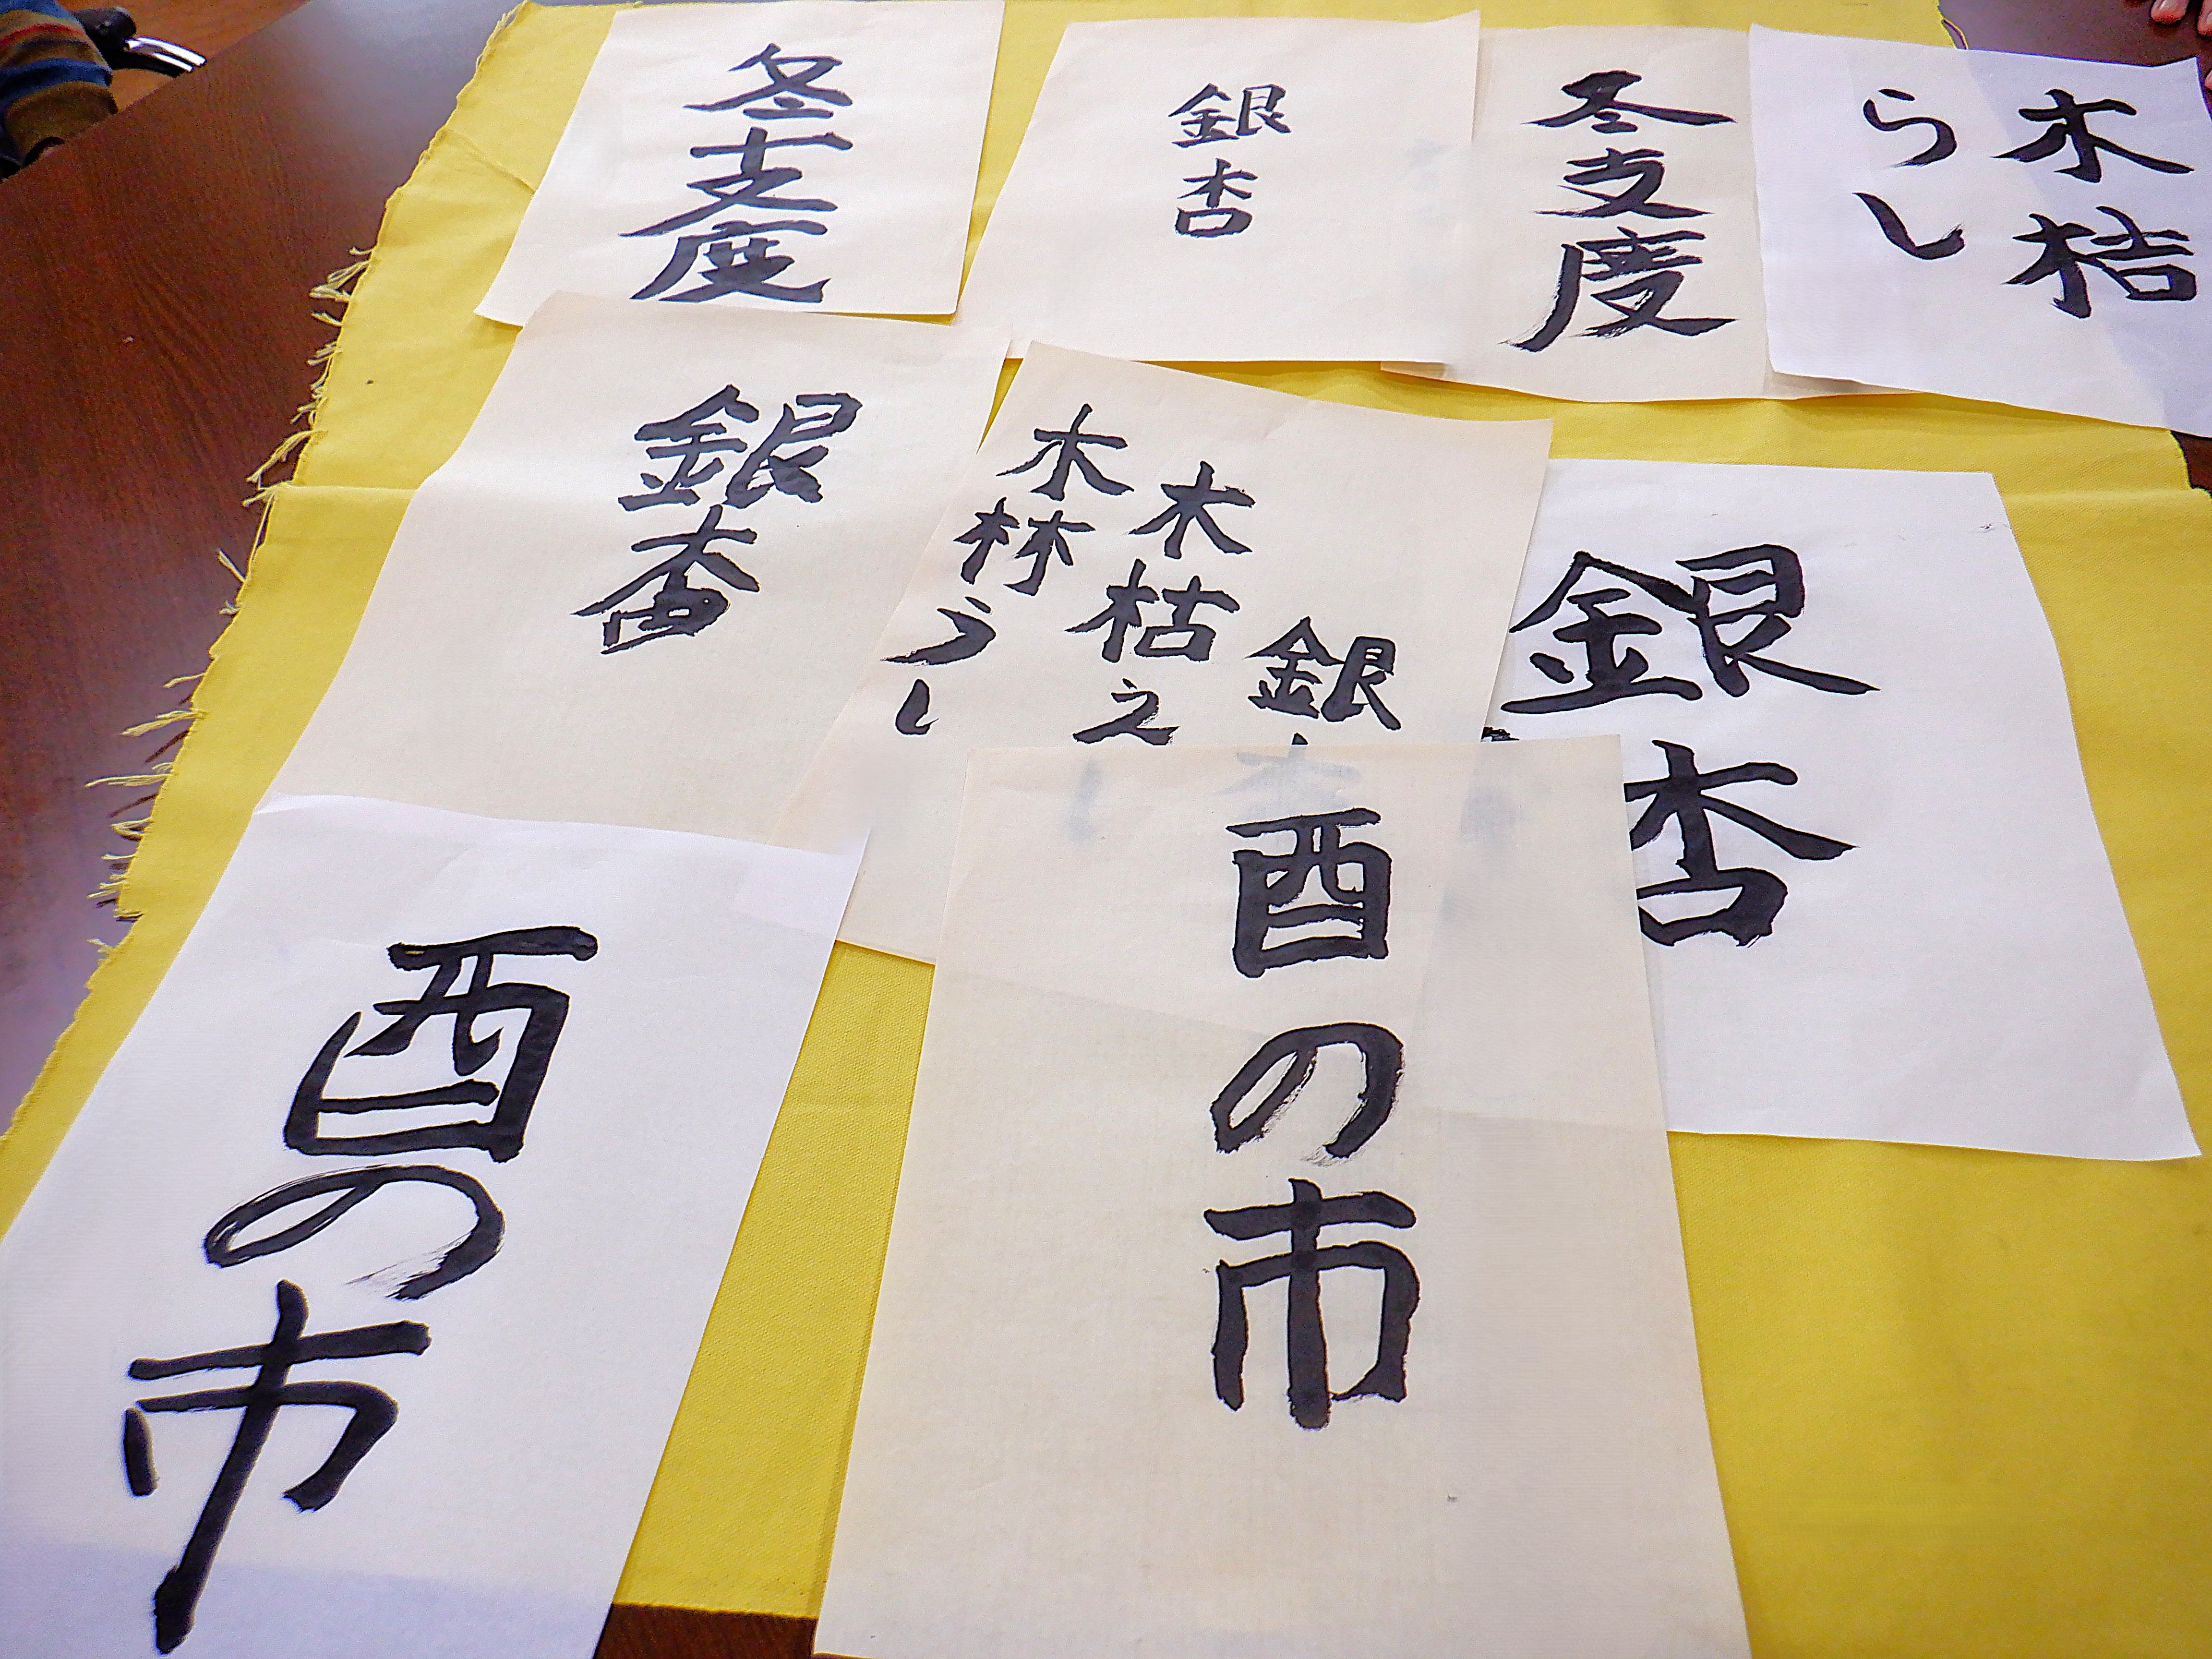 冬支度
銀杏
冬支度
木枯
らし
銀杏
銀杏
木枯えし
木林うし
銀杏
酉の市
酉の市